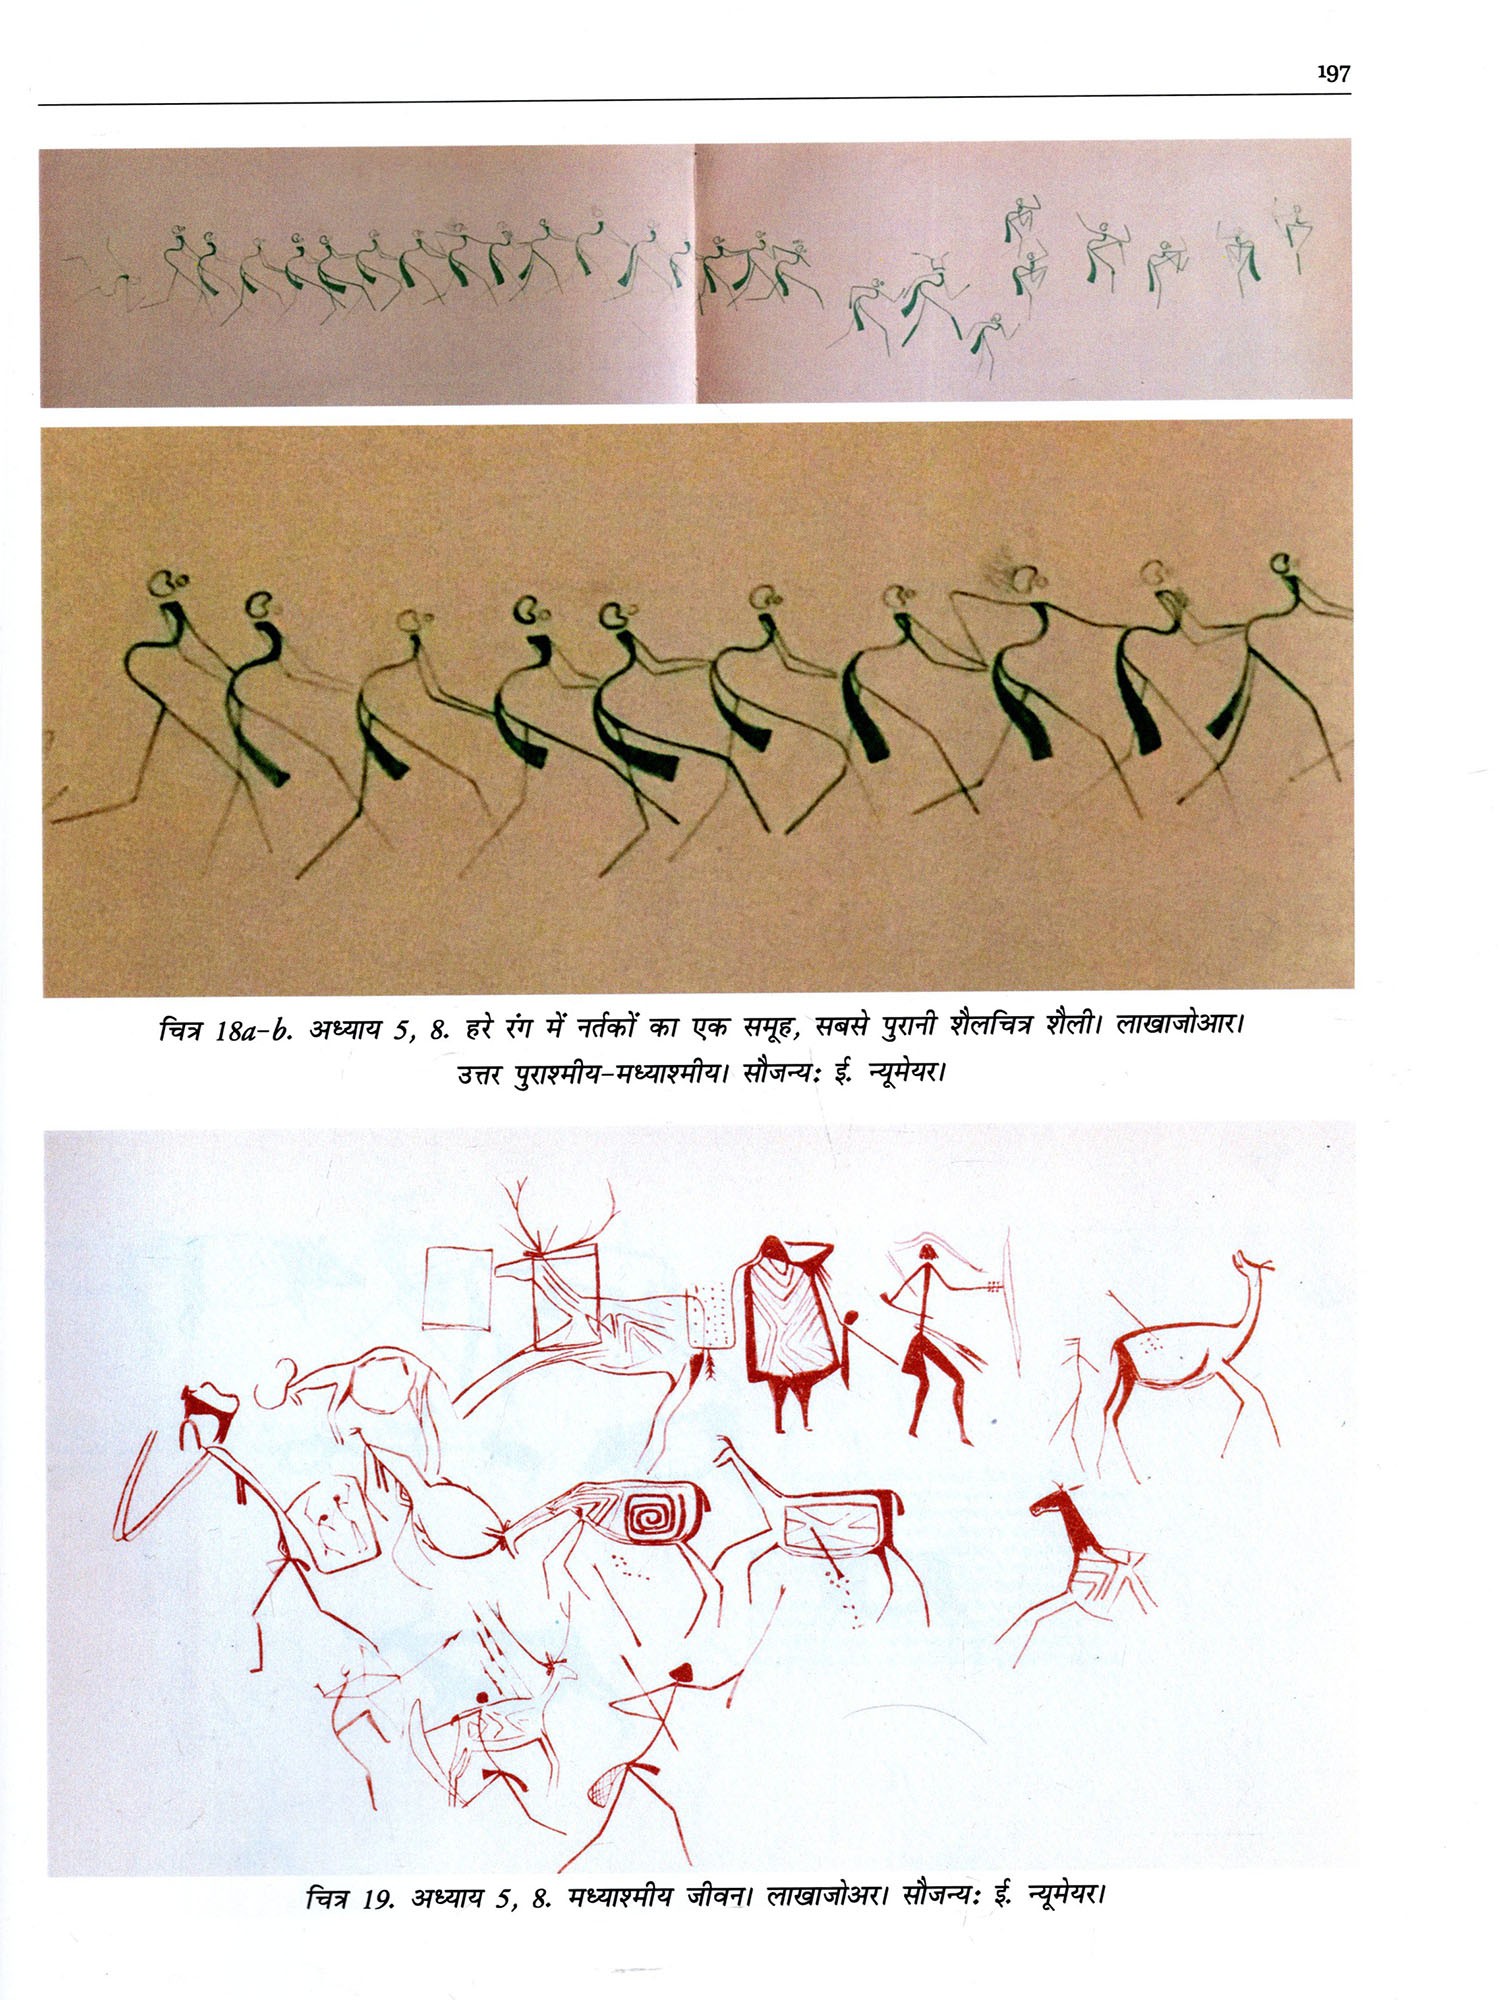 197
चित्र 18a-b. अध्याय 5, 8. हरे रंग में नर्तकों का एक समूह, सबसे पुरानी शैलचित्र शैली। लाखाजोआर।
उत्तर पुराश्मीय-मध्याश्मीय। सौजन्य: ई. न्यूमेयर।
चित्र 19. अध्याय 5, 8. मध्याश्मीय जीवन। लाखाजोअर। सौजन्य: ई. न्यूमेयर।